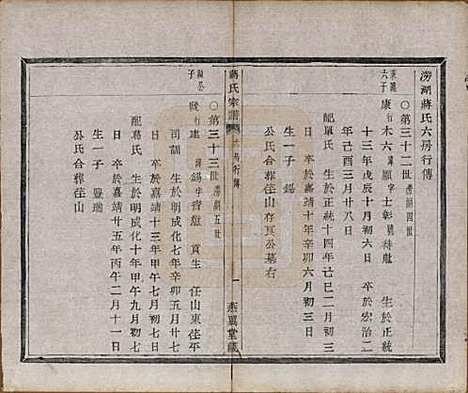 滂湖蔣氏六房行傳
○第三十二世滂湖四世
六子
康行木六
諱顒字士彰號待徵
生於正統
十三年戊辰十月初六日
卒於宏治二
年己酉三月廿八日
配單氏
生於正統十四年己巳二月初三
日
卒於嘉靖辛卯六月初三日
生一子
錫
公氏合葬佳山存真公墓右
蔣氏宗譜
六房行傳
一
燕翼堂藏
子
○第三十三世滂湖五世
諱錫字
貢生
任山東
司訓
生於明成化七年辛卯五月廿七
日
卒於嘉靖十三年甲午七月初七日
配聶氏
生於明成化十年甲午九月初九
日
卒於嘉靖廿五年丙午二月十一日
生一子
公氏合葬佳山